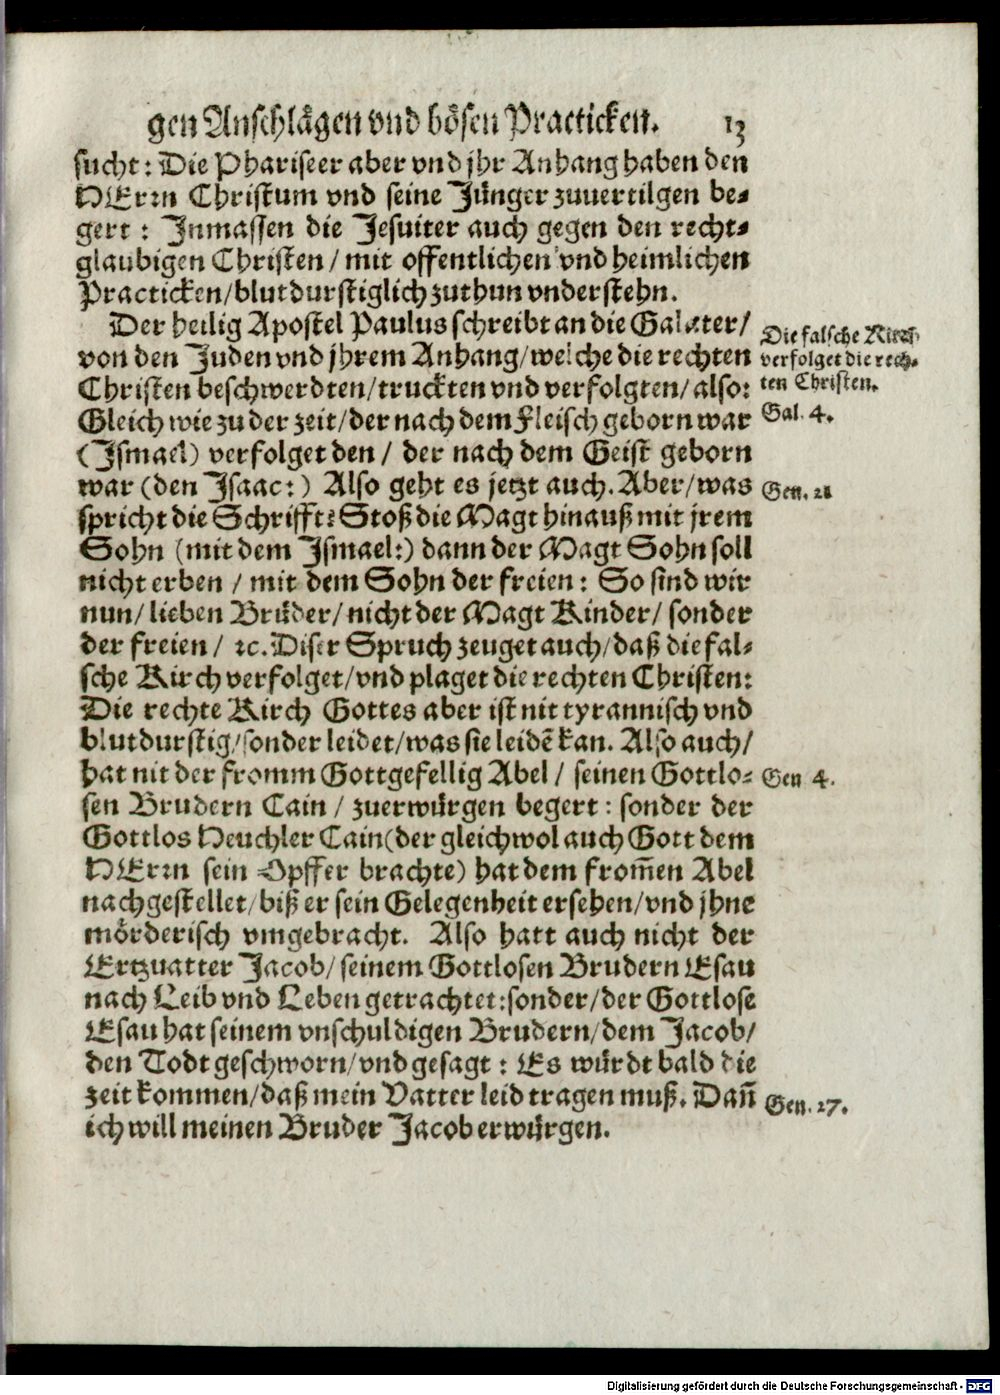 gen Anschlägen vnd bösen Practicken. 13
sucht: Die Phariseer aber vnd jhr Anhang haben den
HErrn Christum vnd seine Jünger zuuertilgen be-
gert: Inmassen die Jesuiter auch gegen den recht-
glaubigen Christen / mit offentlichen vnd heimlichen
Practicken/blutdurstiglich zuthun vnderstehn.
Der heilig Apostel Paulus schreibt an die Galater/
von den Juden vnd jhrem Anhang/welche die rechten
Christen beschwerdten/truckten vnd verfolgten/also:
Gleich wie zu der zeit/der nach dem Fleisch geborn war
(Ismael) verfolget den / der nach dem Geist geborn
war (den Isaac:) Also geht es jetzt auch. Aber/was
spricht die Schrifft: Stoß die Magt hinauß mit jrem
Sohn (mit dem Ismael:) dann der Magt Sohn soll
nicht erben / mit dem Sohn der freien: So sind wir
nun/ lieben Brüder/ nicht der Magt Kinder/ sonder
der freien / ꝛc. Diser Spruch zeuget auch/daß die fal-
sche Kirch verfolget/vnd plaget die rechten Christen:
Die rechte Kirch Gottes aber ist nit tyrannisch vnd
blutdurstig/sonder leidet/was sie leidē kan. Also auch/
hat nit der fromm Gottgefellig Abel / seinen Gottlo-
sen Brudern Cain / zuerwürgen begert: sonder der
Gottlos Heuchler Cain(der gleichwol auch Gott dem
HErrn sein Opffer brachte) hat dem from̄en Abel
nachgestellet/biß er sein Gelegenheit ersehen/vnd jhne
mörderisch vmgebracht. Also hatt auch nicht der
Ertzuatter Jacob/ seinem Gottlosen Brudern Esau
nach Leib vnd Leben getrachtet:sonder/der Gottlose
Esau hat seinem vnschuldigen Brudern/dem Jacob/
den Todt geschworn/vnd gesagt: Es würdt bald die
zeit kommen/daß mein Vatter leid tragen muß. Dañ
ich will meinen Bruder Jacob erwürgen.
Die falsche Kirch
verfolget die rech-
ten Christen.
Gal. 4.
Gen. 21
Gen 4.
Gen. 27.
Digitalisierung gefördert durch die Deutsche Forschungsgemeinschaft - DFG